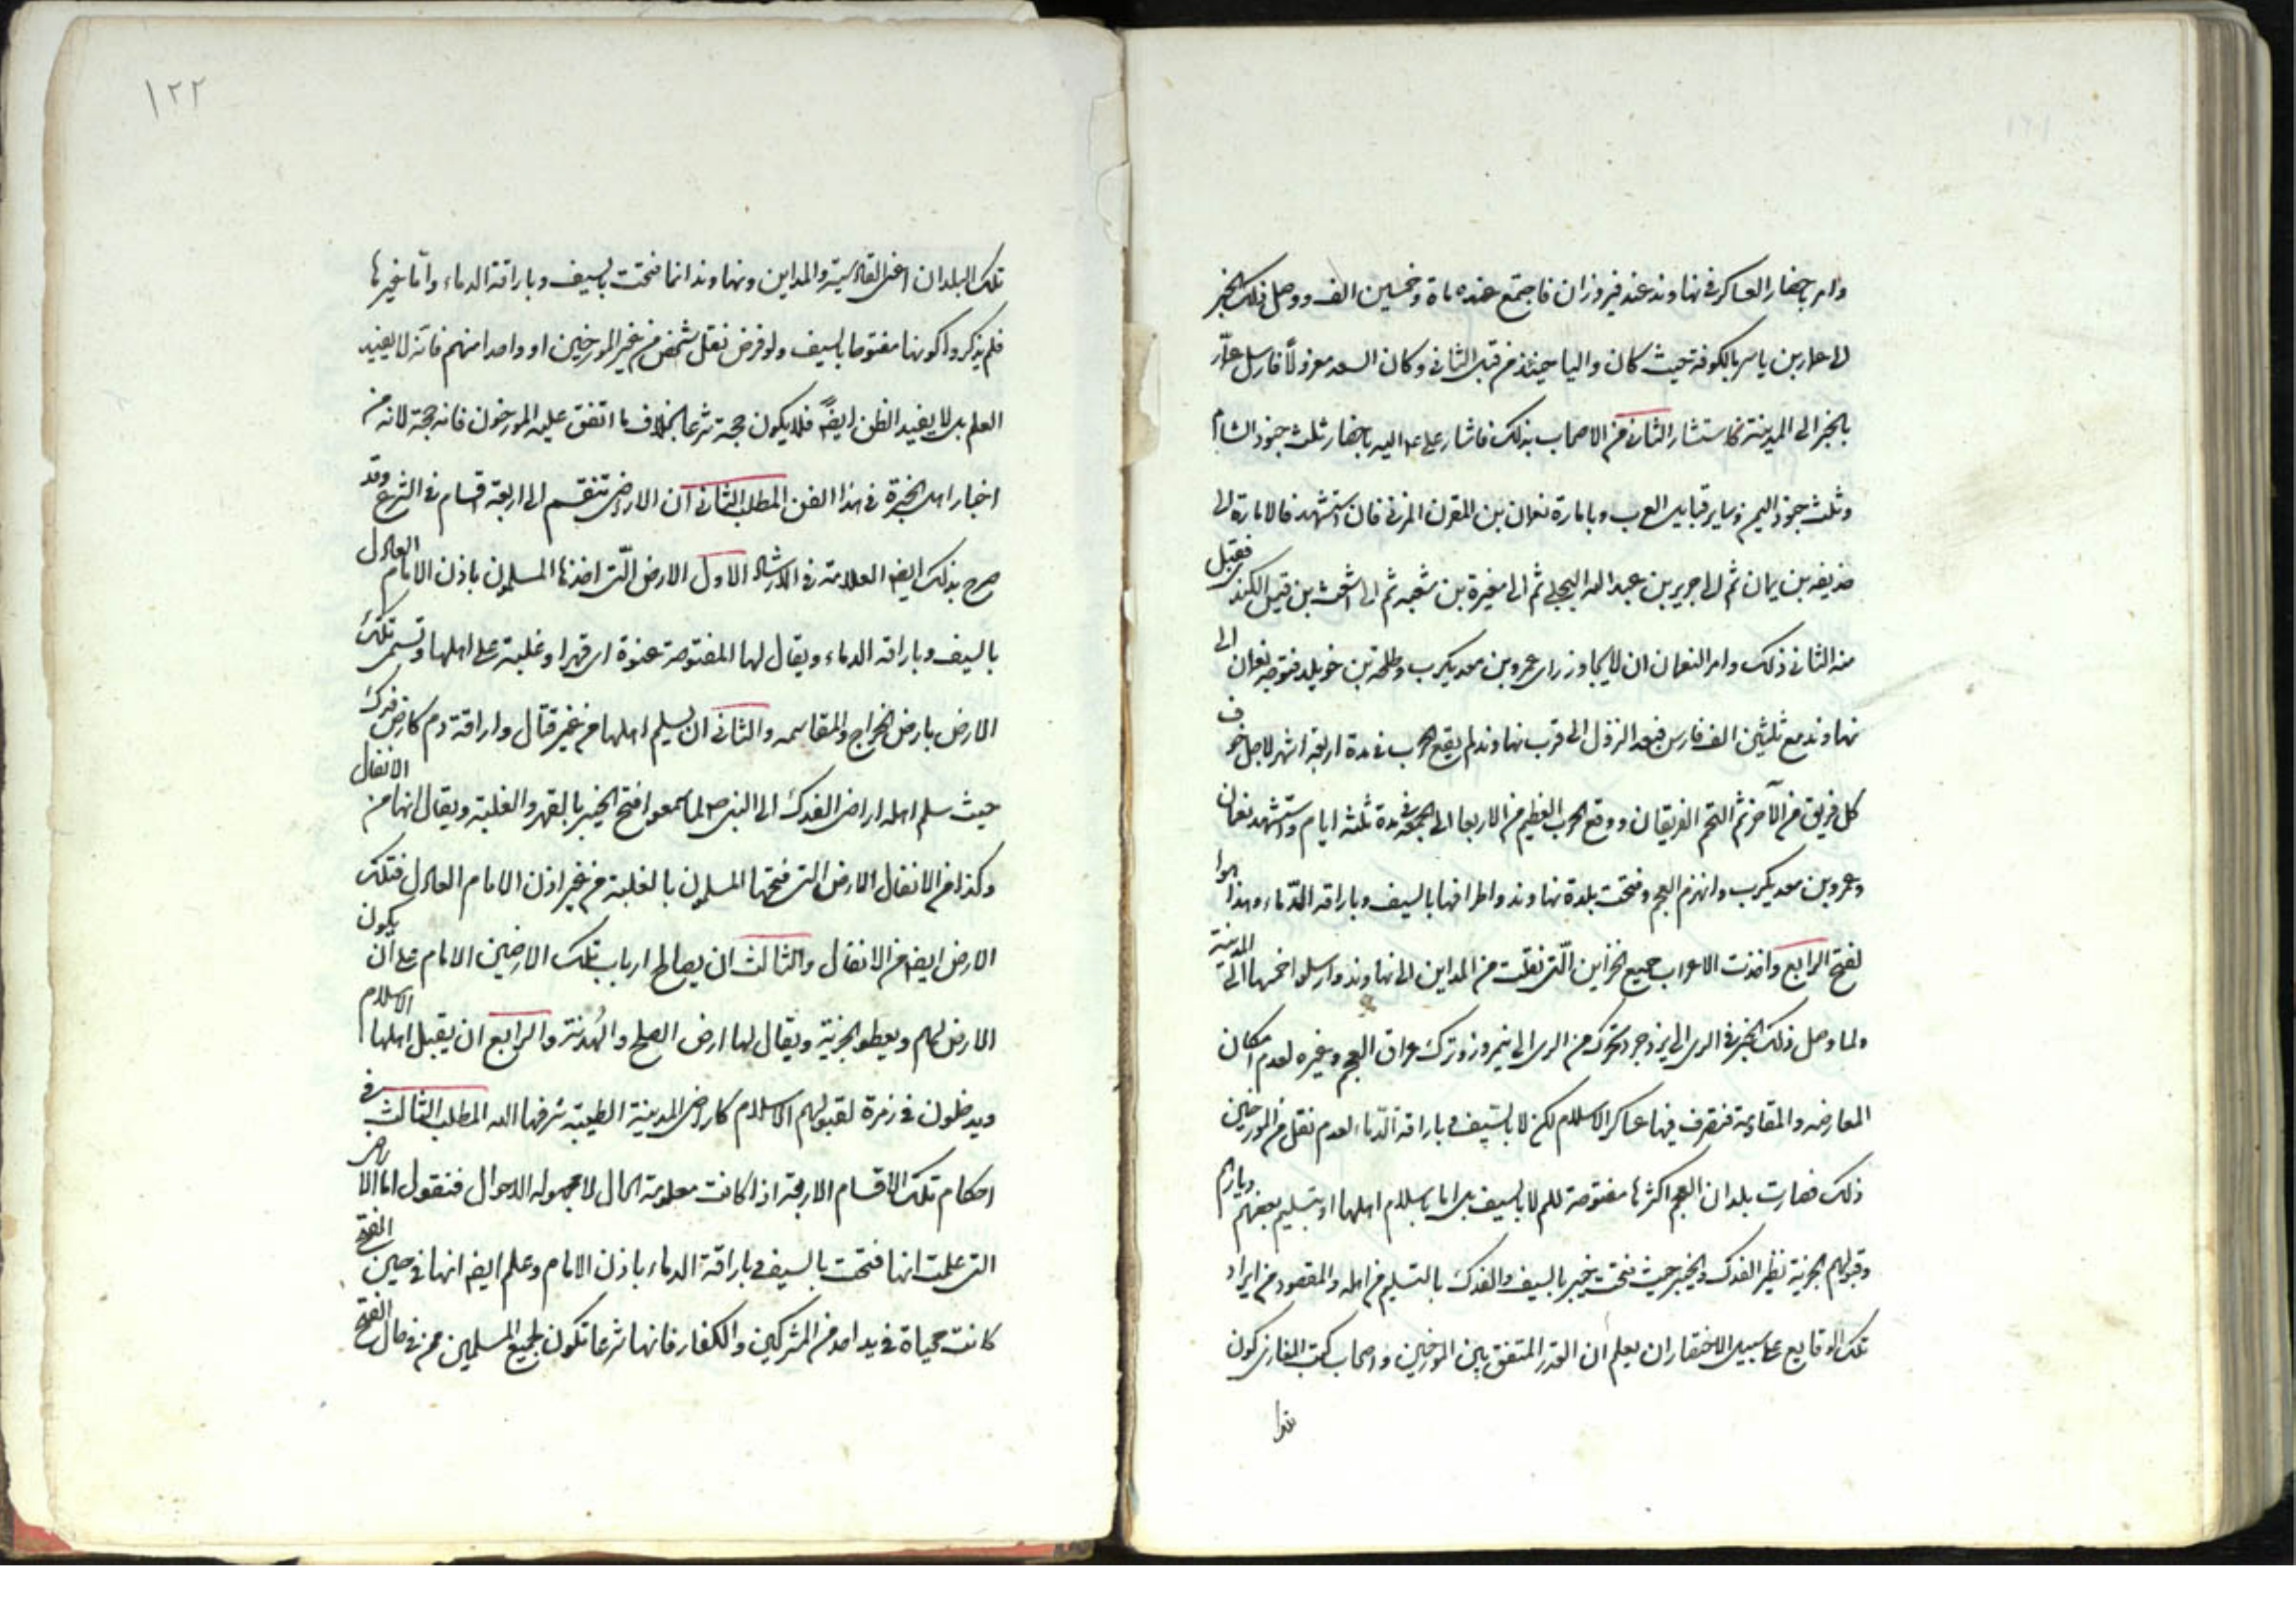 وامر باحضار العساكر فى نهاوند عند فيروزان فاجتمع عنده ماة وخمسين الف ووصل ذلك الخبر
الى عمار بن ياسر بالكوفة حيث كان واليا حينئذ من قبل الثانى وكان السعد معزولاً فارسل عمّار
بالخبر الى المدينة فاستشار الثانى من الاصحاب بذلك فاشار على ع اليه باحضار ثلث جنود الشام
وثلث جنود اليمن وساير قبايل العرب وبامارة نعمان بن المقرن المزنى فان استشهد فالامارة الى
حذيفه بن يمان ثم الى جرير بن عبد الله البجلى ثم الى مغيرة بن شعبه ثم الى اشعث بن قيس الكندى فقبل
منه الثانى ذلك وامر النعمان ان لا يجاوز راى عمرو بن معد يكرب وطلحة بن خويلد فتوجه نعمان الى
نهاوند مع ثلثين الف فارس فبعد النزول الى قرب نهاوند لم يقع الحرب فى مدة اربعة اشهر لاجل خوف
كل فريق من الآخر ثم التحم الفريقان ووقع الحرب العظيم من الاربعا الى الجمعة فى مدة ثلثه ايام واستشهد نعمان
وعمرو بن معد يكرب وانهزم العجم وفتحت بلدة نهاوند واطرافها بالسيف وباراقة الدّماء وهذا هوا
لفتح الرابع واخذت الاعراب جميع الخزاين الّتى نقلت من المداين الى نهاوند وارسلوا خمسها الى المدينة
ولما وصل ذلك الخبر فى الرى الى يزدجرد تحرك من الرى الى نيمروز وترك عراق العجم وغيره لعدم امكان
المعارضه والمقاومة فتصرف فيها عساكر الاسلام لكن لا بالسيف وباراقة الدّماء لعدم نقل من المورخين
ذلك فصارت بلدان العجم اكثرها مفتوحة للمسلمين لا بالسيف بل اما باسلام اهلها او بتسليم بعضهم ديارهم
وقبولهم الجزية نظير الفدك والخيبر حيث فتحت خيبر بالسيف والفدك بالتسليم من اهله والمقصود من ايراد
تلك الوقايع على سبيل الاختصار ان يعلم ان القدر المتفق بين المورخين واصحاب كتب المغازى كون
تلك
١٢٢
تلك البلدان اعنى القادسية والمداين ونهاوند انما فتحت بالسيف وباراقة الدماء واما غيرها
فلم يذكروا كونها مفتوحا بالسيف ولو فرض نقل شخص من غير المورخين او واحدا منهم فانه لا يفيد
العلم بل لا يفيد الظن ايضً فلا يكون حجة شرعا بخلاف ما اتفق عليه المورخون فانه حجة لانه من
اخبار اهل الخبرة فى هذا الفن المطلب الثانى ان الاراضى تنقسم الى اربعة اقسام فى الشرع وقد
صرح بذلك ايضا العلامة فى الارشاد الاول الارض الّتى اخذها المسلمون باذن الامام العادل
بالسيف وباراقة الدماء ويقال لها المفتوحة عنوة اى قهرا وغلبة على اهلها وتسمى تلك
الارض بارض الخراج والمقاسمه والثانى ان يسلم اهلها من غير قتال واراقة دم كارض فدك
حيث سلم اهله اراضى الفدك الى النبى ص لما سمعوا فتح الخيبر بالقهر والغلبة ويقال انها من الانفال
وكذا من الانفال الارض التى فتحها المسلمون بالغلبة من غير اذن الامام العادل فتلك
الارض ايضا من الانفال والثالث ان يصالح ارباب تلك الارضين الامام على ان يكون
الارض لهم ويعطو الجزية ويقال لها ارض الصلح والهُدنة والرابع ان يقبل اهلها الاسلام
ويدخلون فى زمرة لقبولهم الاسلام كاراضى المدينة الطيبة شرفها الله المطلب الثالث فى
احكام تلك الاقسام الاربعة اذا كانت معلومة الحال لا مجهوله الاحوال فنقول اما الاراضى
التى علمت انها فتحت بالسيف وباراقة الدماء باذن الامام وعلم ايضا انها فى حين الفتح
كانت محياة فى يد احد من المشركين والكفار فانها شرعا تكون لجميع المسلمين ممن فى حال الفتح